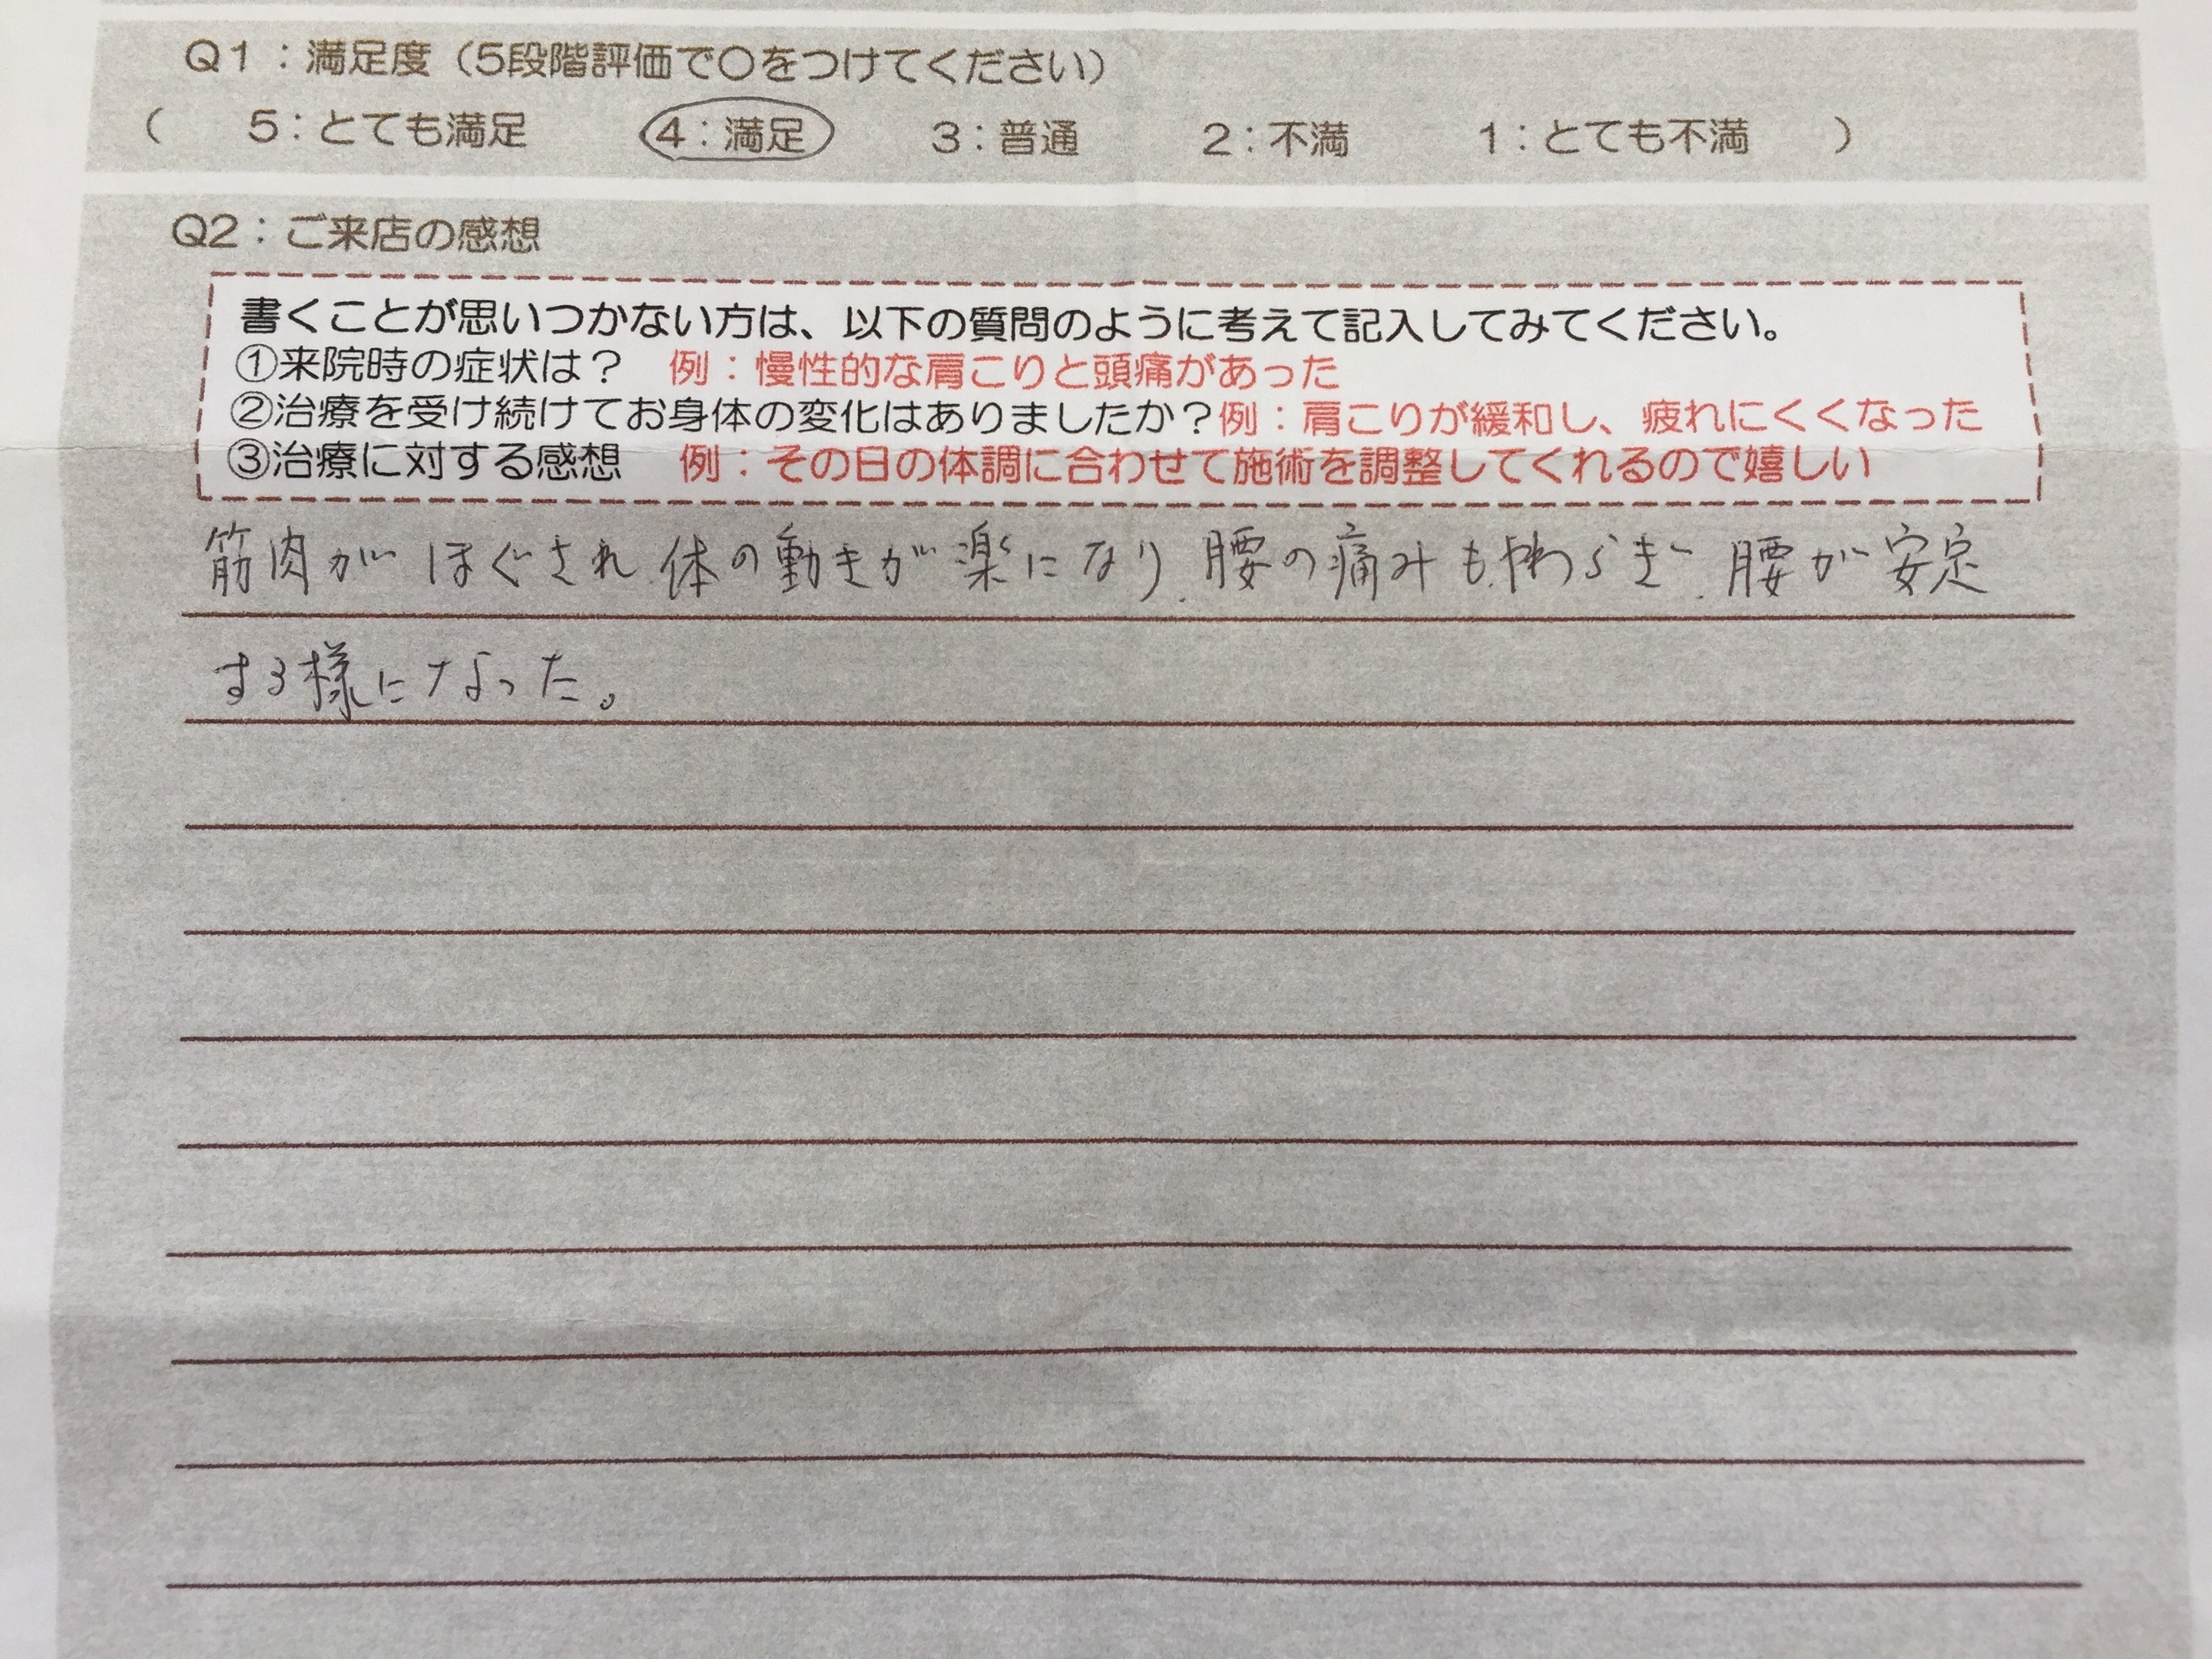 Q1：満足度（5段階評価で〇をつけてください）
（　5：とても満足　4：満足　3：普通　2：不満　1：とても不満　）
Q2：ご来店の感想
書くことが思いつかない方は、以下の質問のように考えて記入してみてください。
①来院時の症状は？　例：慢性的な肩こりと頭痛があった
②治療を受け続けてお身体の変化はありましたか？例：肩こりが緩和し、疲れにくくなった
③治療に対する感想　例：その日の体調に合わせて施術を調整してくれるので嬉しい
筋肉がほぐされ、体の動きが楽になり、腰の痛みもやわらぎ、腰が安定
する様になった。